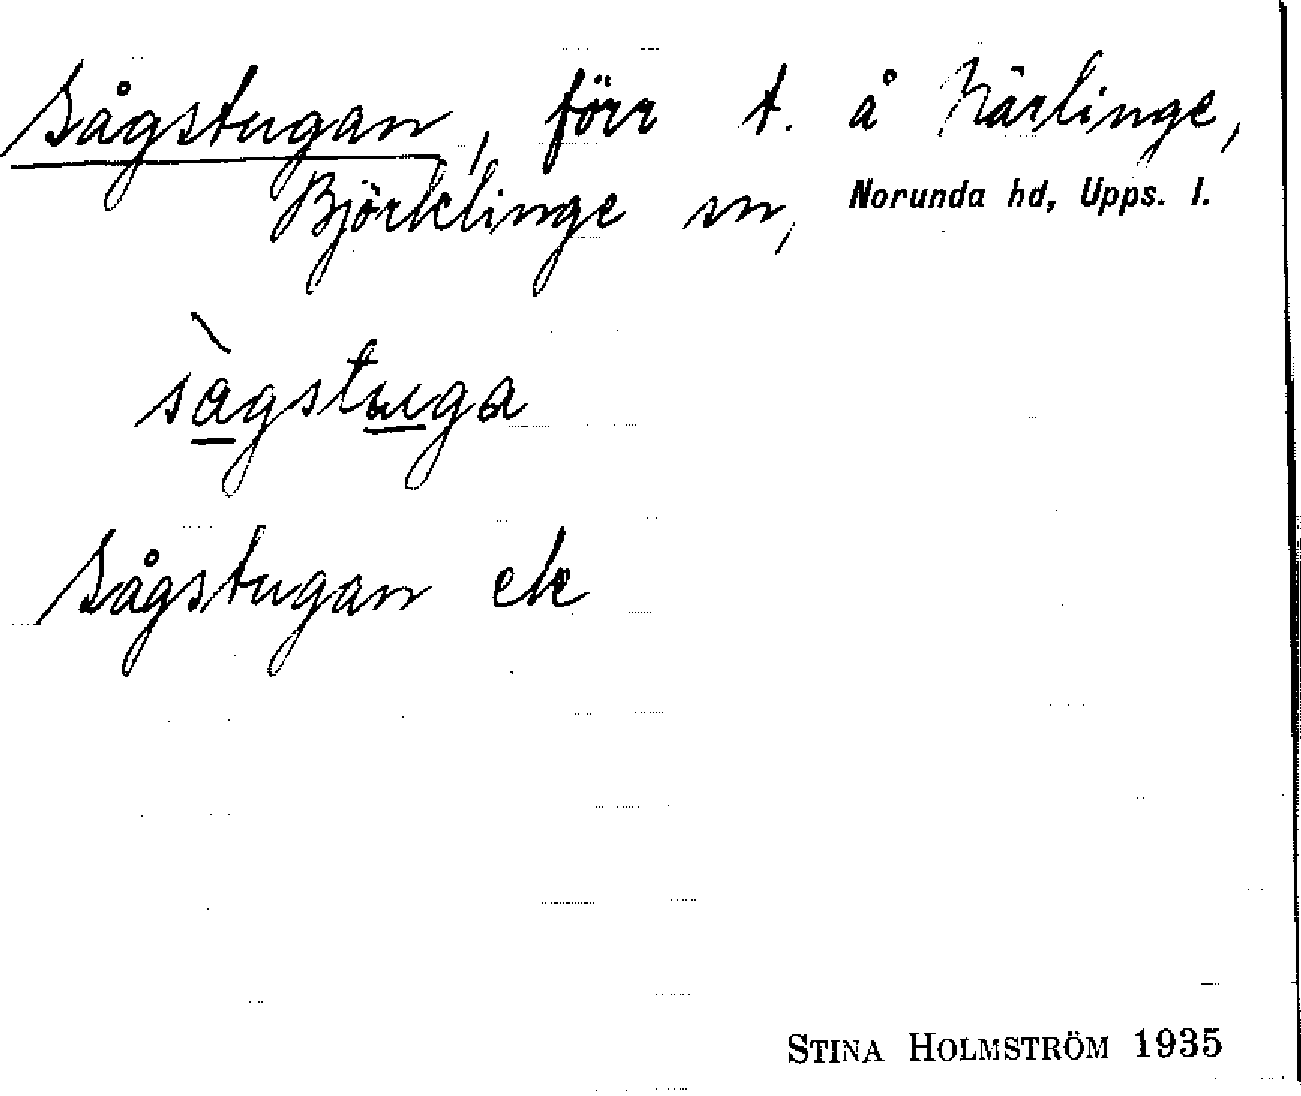 Sågstugan, förr t. å Närlinge,
Björklinge sn, Norunda hd, Upps. l.
sàgstuga
Sågstugan ek
STINA HOLMSTRÖM 1935